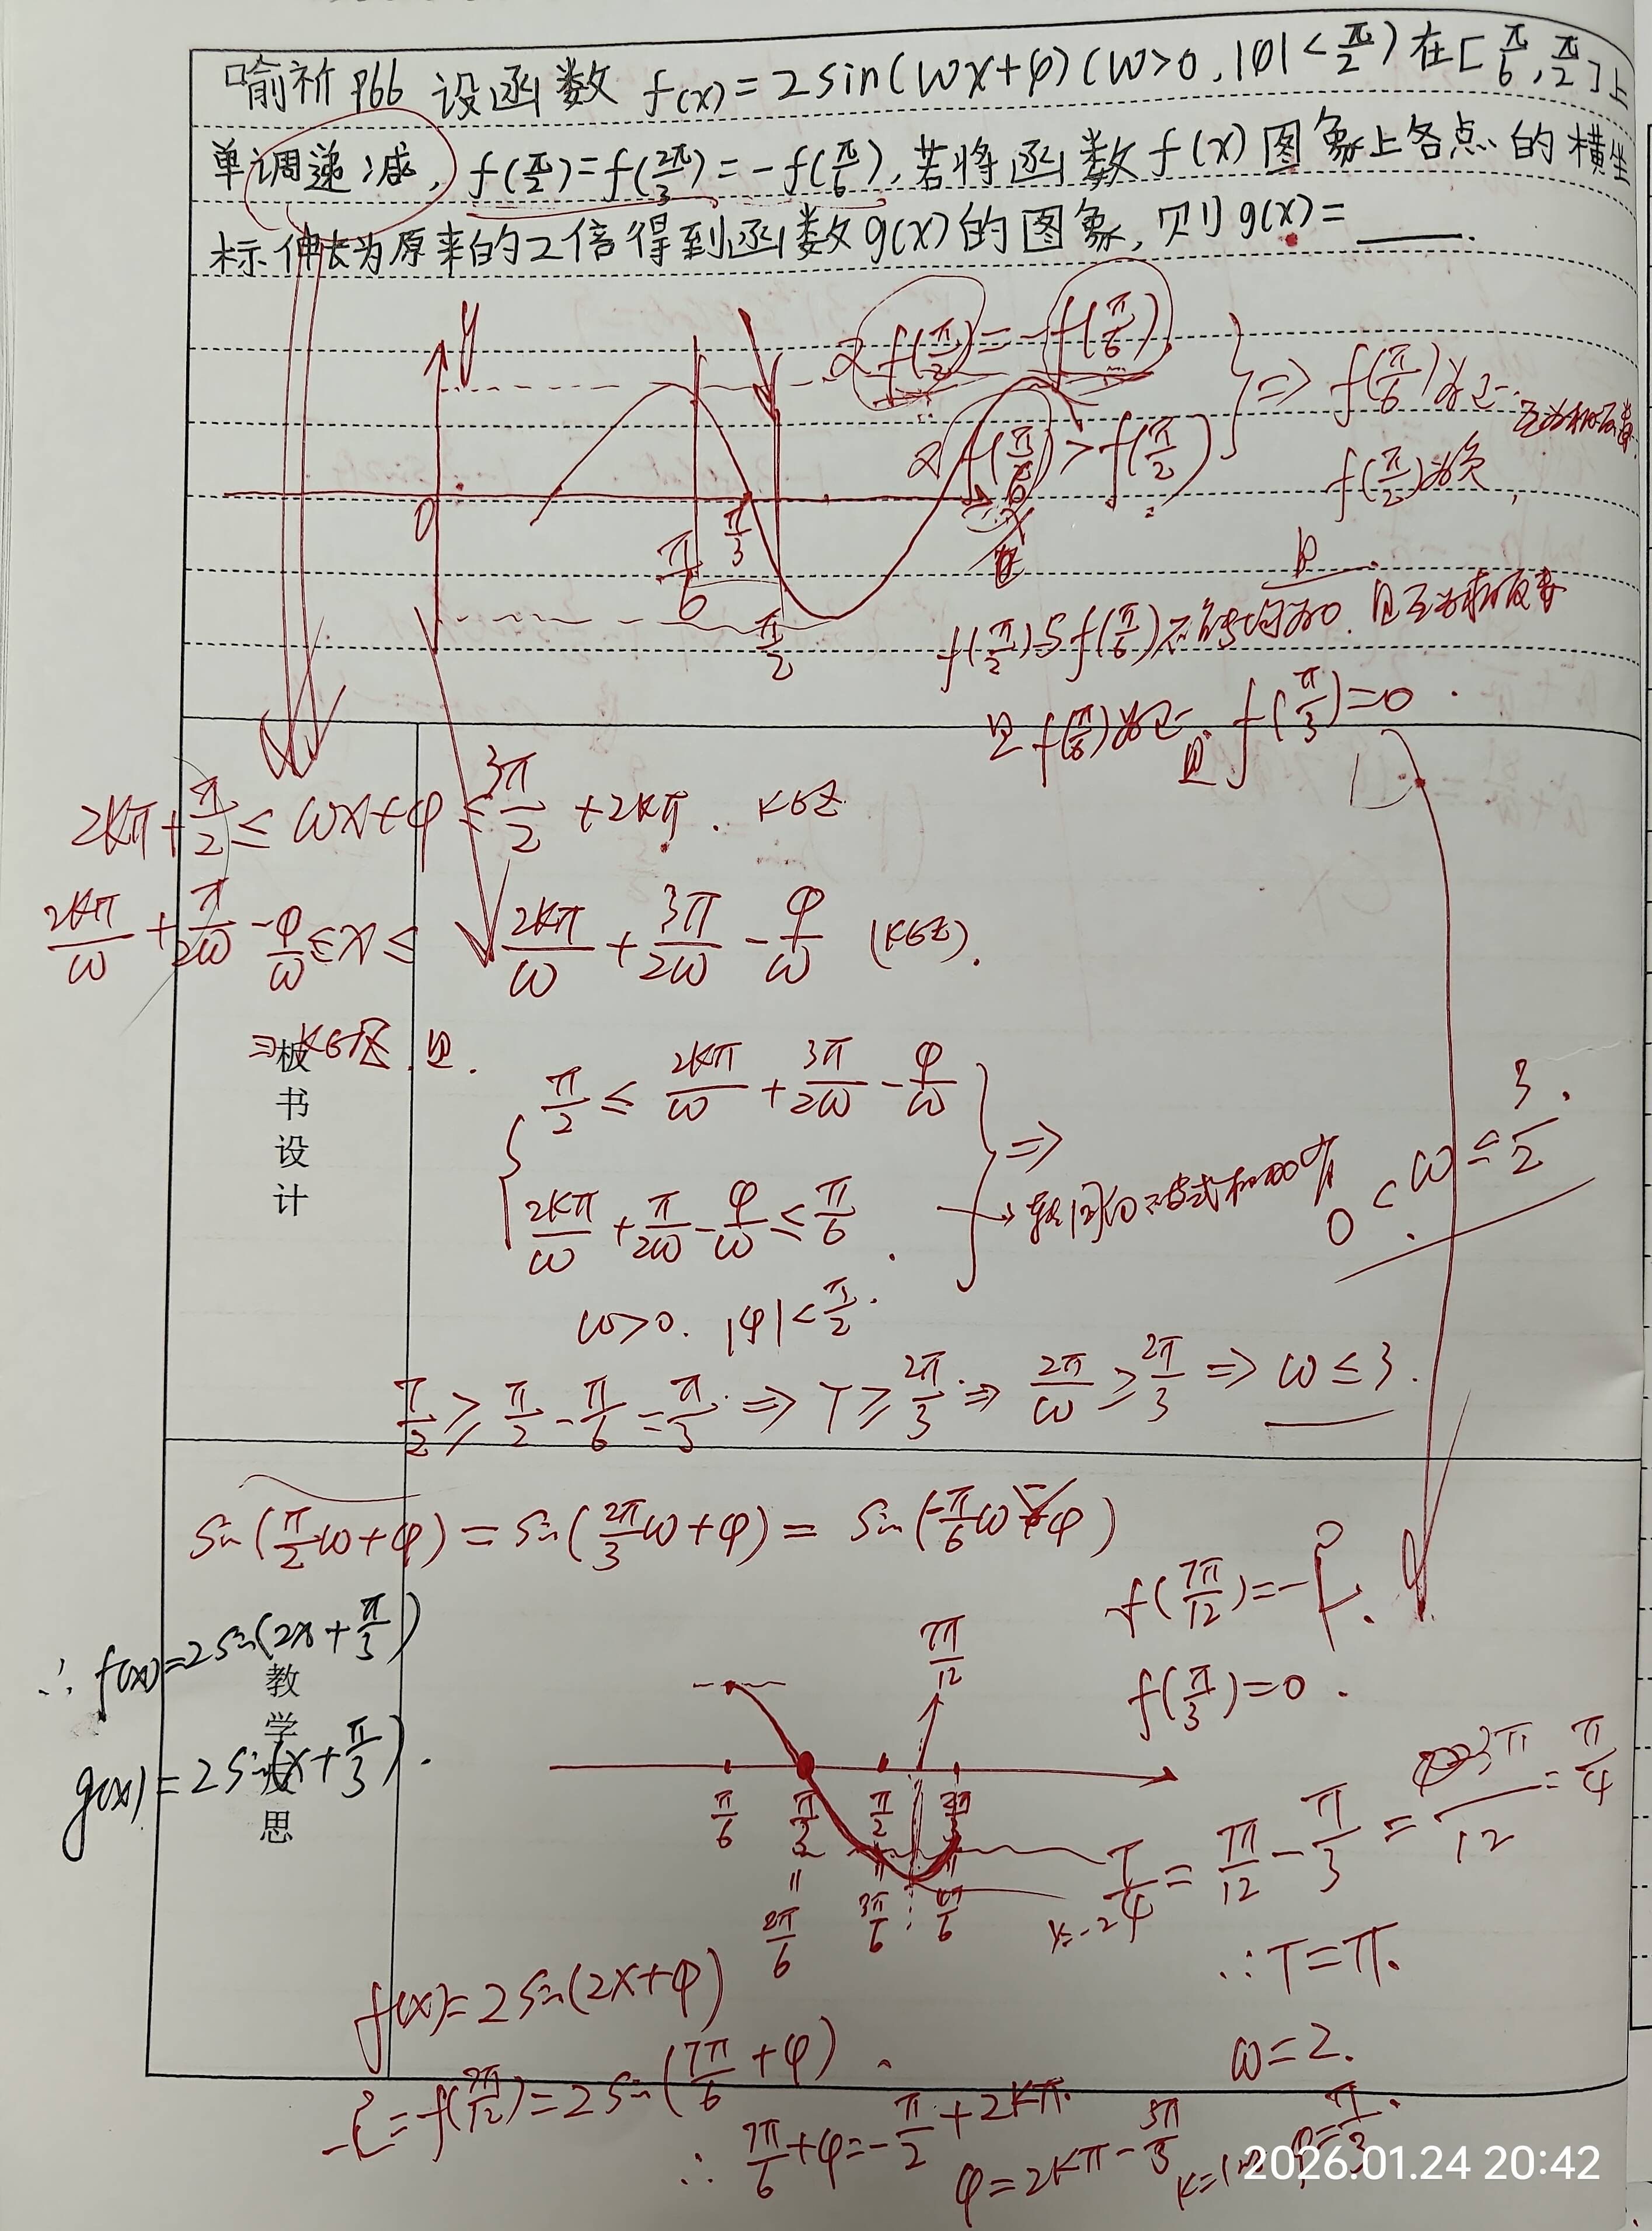 喻祈 P66 设函数 f(x)=2sin(ωx+φ)(ω>0,|φ|<π/2)在[π/6,π/2]上
单调递减, f(π/2)=f(2π/3)=-f(π/6),若将函数f(x)图象上各点的横坐
标伸长为原来的2倍得到函数g(x)的图象,则g(x)=____.
y
f(π/2)=-f(π/6)
⇒ f(π/6)为正
互为相反数
f(π/6)>f(π/2)
f(π/2)为负,
0
π/6
π/3
π/2
f(π/2)与f(π/6) 且互为相反数
且f(π/6)为正 且 f(π/3)=0
2kπ+π/2≤ωx+φ≤3π/2+2kπ. k∈Z
2kπ/ω+π/2ω-φ/ω≤x≤2kπ/ω+3π/2ω-φ/ω (k∈Z).
∃k∈Z 且.
π/2≤2kπ/ω+3π/2ω-φ/ω
⇒
2kπ/ω+π/2ω-φ/ω≤π/6
0<ω≤3/2.
ω>0. |φ|<π/2.
T/2≥π/2-π/6=π/3⇒T≥2π/3⇒2π/ω≥2π/3⇒ω≤3.
板书设计
sin(π/2ω+φ)=sin(2π/3ω+φ)=sin(-π/6ω-φ)
f(7π/12)=-2.
f(π/3)=0.
∴f(x)=2sin(2x+π/3)
g(x)=2sin(x+π/3).
教学反思
7π/12
π/6 π/3 π/2 2π/3
= = =
2π/6 3π/6 4π/6
x=-2
T/4=7π/12-π/3=3π/12=π/4
∴T=π.
ω=2.
f(x)=2sin(2x+φ)
-2=f(7π/12)=2sin(7π/6+φ)
∴7π/6+φ=-π/2+2kπ.
φ=2kπ-5π/3 k=1 φ=π/3.
2026.01.24 20:42